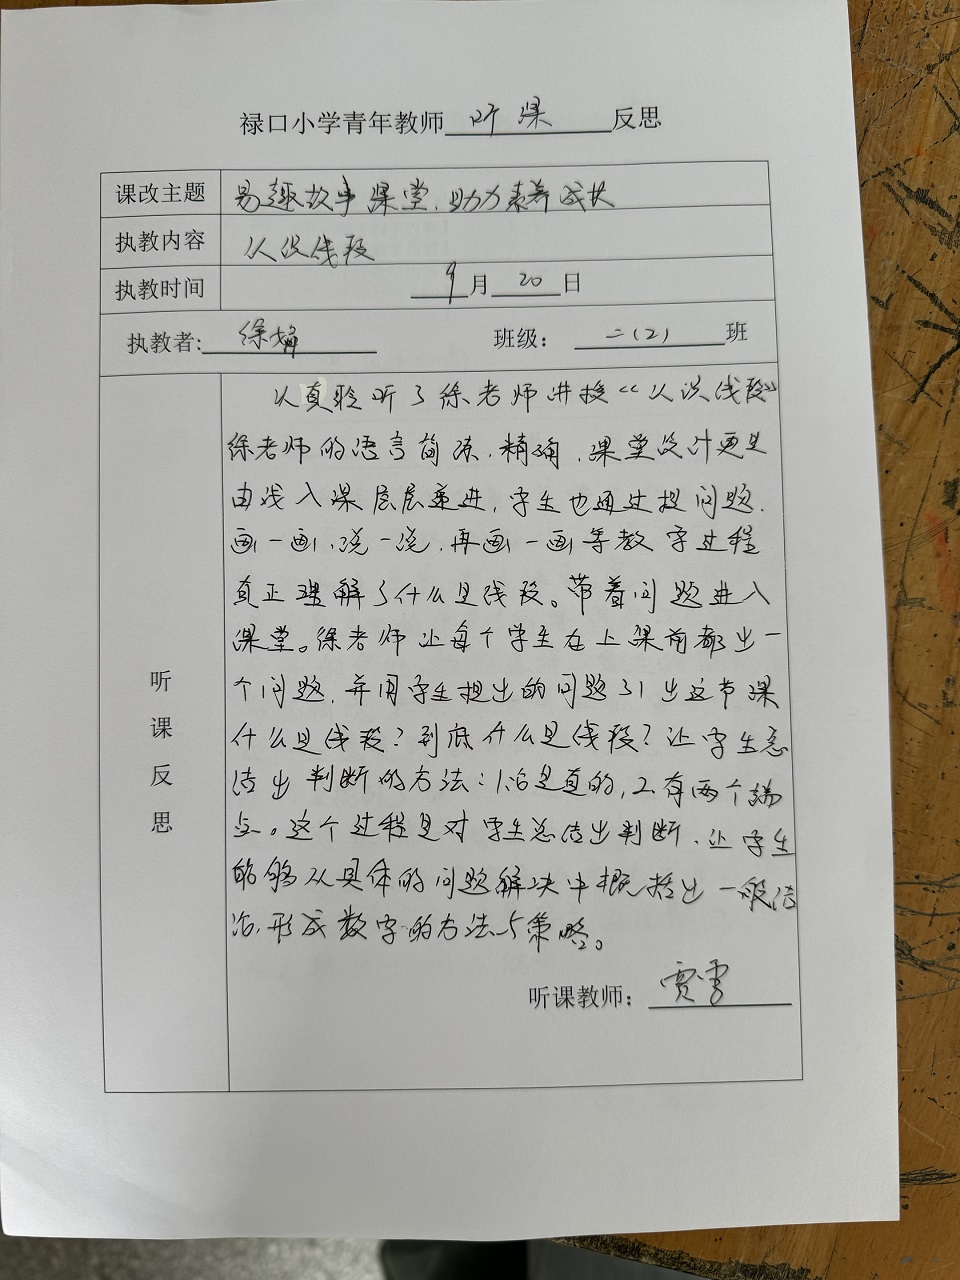 禄口小学青年教师 听课 反思
课改主题 易趣故事课堂,助力素养成长
执教内容 认识线段
执教时间 9月20日
执教者: 徐 班级: 二(2)班
听课反思
认真聆听了徐老师讲授《认识线段》
徐老师的语言简练、精确,课堂设计更是
由浅入深层层递进,学生也通过提问题、
画一画、说一说、再画一画等教学过程
真正理解了什么是线段。带着问题进入
课堂。徐老师让每个学生在上课前都出一
个问题,并用学生提出的问题引出这节课
什么是线段?到底什么是线段?让学生总
结出判断的方法:1.是直的,2.有两个端
点。这个过程是对学生总结出判断、让学生
能够从具体的问题解决中概括出一般结
论,形成数学的方法与策略。
听课教师: 贾雪